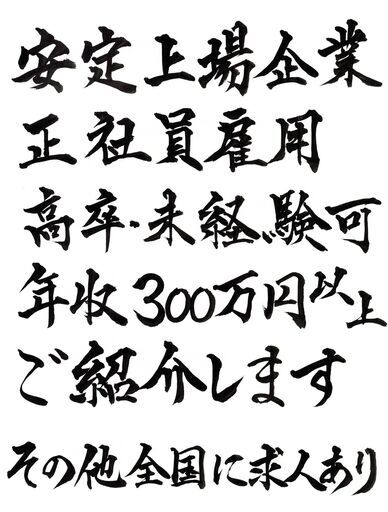 安定上場企業
正社員雇用
高卒・未経験可
年収300万円以上
ご紹介します
その他全国に求人あり